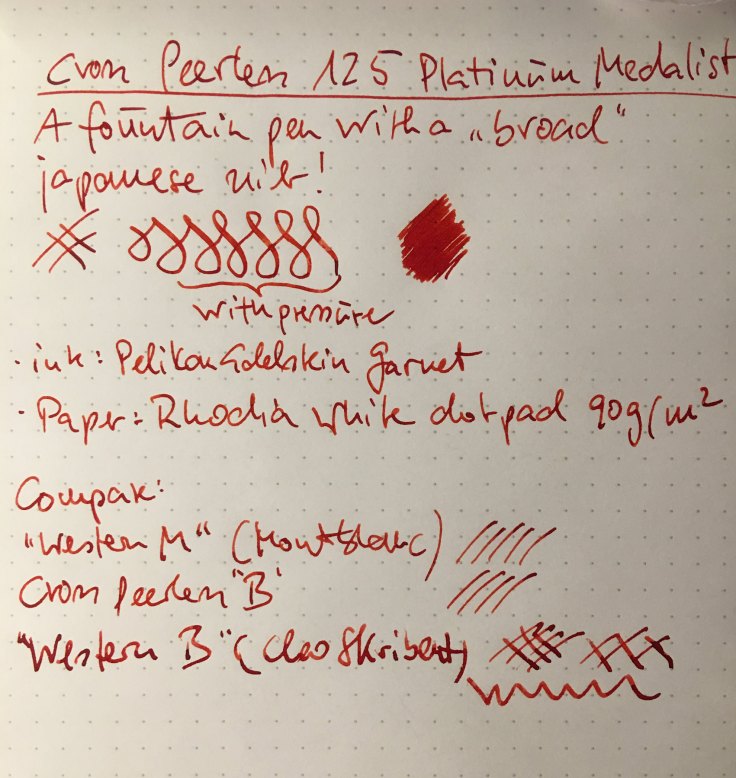 Cross Peerless 125 Platinum Medalist
A fountain pen with a „broad“
japanese nib!
with pressure
· ink: Pelikan Edelstein Garnet
· Paper: Rhodia white dotpad 90g/m²
Compare:
"Western M" (Montblanc)
Cross Peerless "B"
"Western B" (Cleo Skribent)